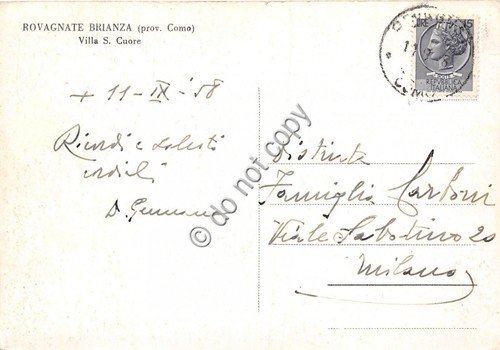 ROVAGNATE BRIANZA (prov. Como)
Villa S. Cuore
+ 11-IX-58
Ricordi e saluti
cordiali
D. Germano
Distinta
Famiglia Carboni
Viale Sabotino 20
Milano
LIRE 15
REPUBBLICA
ITALIANA
COMO
do not copy